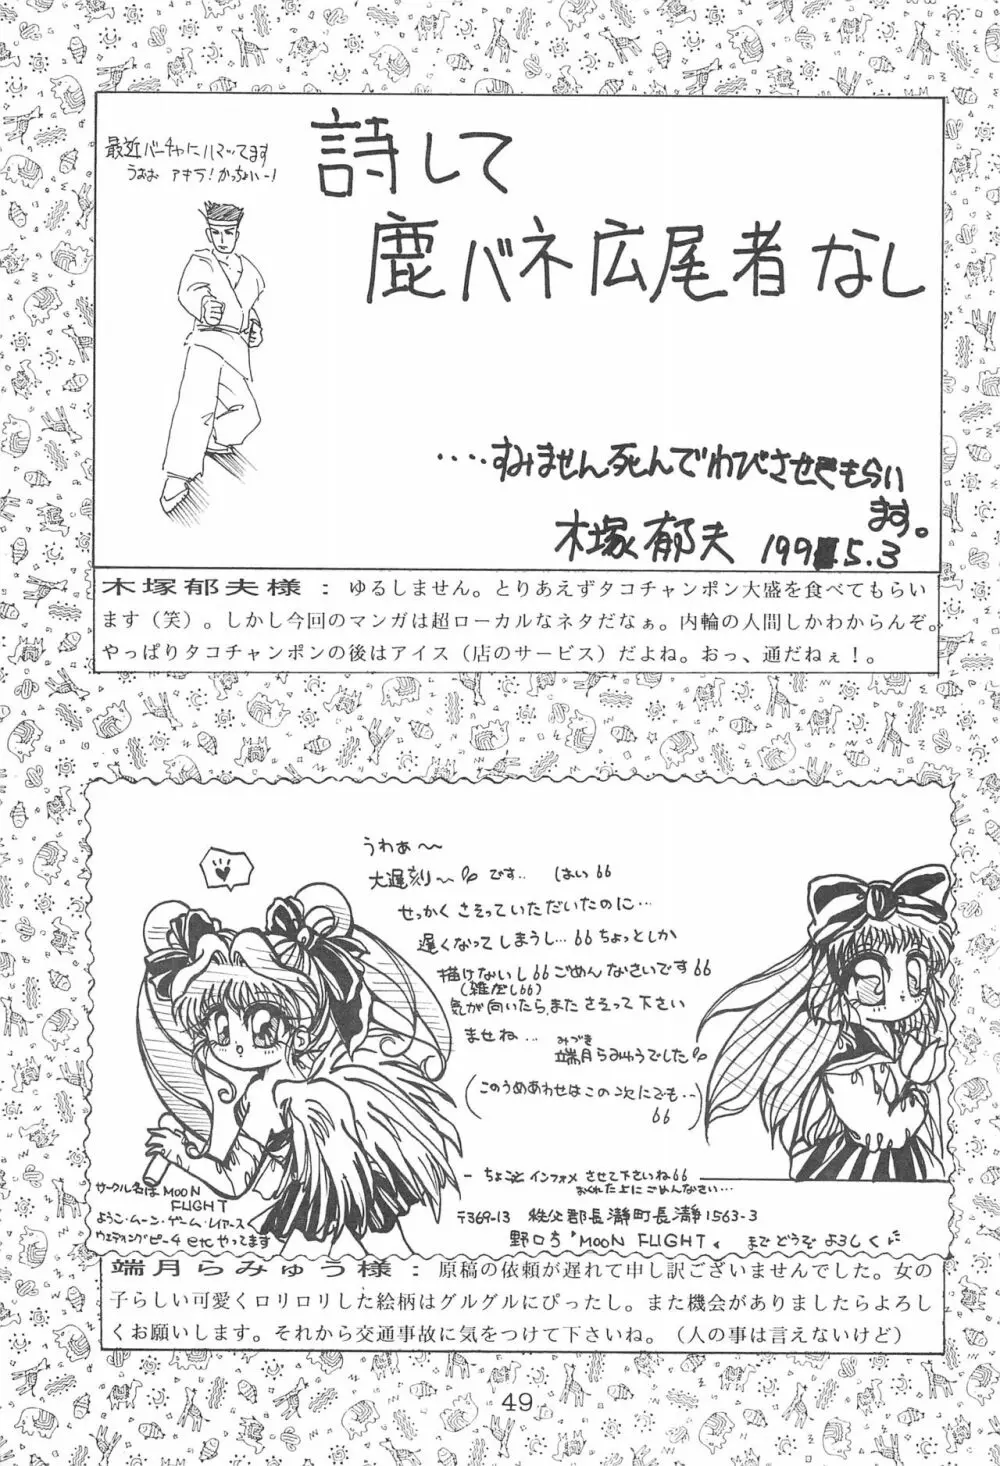 最近バーチャにハマってます
うおお アキラ！かっちょいー！
詩して
鹿バネ広尾者なし
‥‥すみません死んでわびさせてもらい
ます。
木塚郁夫 199 5.3
木塚郁夫様：ゆるしません。とりあえずタコチャンポン大盛を食べてもらい
ます（笑）。しかし今回のマンガは超ローカルなネタだなぁ。内輪の人間しかわからんぞ。
やっぱりタコチャンポンの後はアイス（店のサービス）だよね。おっ、通だねぇ！。
うわぁ〜
大遅刻〜です‥ はい
せっかくさそっていただいたのに…
遅くなってしまうし… ちょっとしか
描けないし ごめんなさいです
(雑だし)
気が向いたら、またさそって下さい
ませね…
みづき
端月らみゅうでした
(このうめあわせはこの次にでも…)
- ちょこっとインフォメさせて下さいね
おくれた上にごめんなさい…
サークル名はMOON
FLIGHT
ようこ・ムーン・ゲーム・レイアース
ウェディングピーチ etc やってます
〒369-13 秩父郡長瀞町長瀞1563-3
野口方「MOON FLIGHT」までどうぞよろしく
端月らみゅう様：原稿の依頼が遅れて申し訳ございませんでした。女の
子らしい可愛くロリロリした絵柄はグルグルにぴったし。また機会がありましたらよろし
くお願いします。それから交通事故に気をつけて下さいね。（人の事は言えないけど）
49